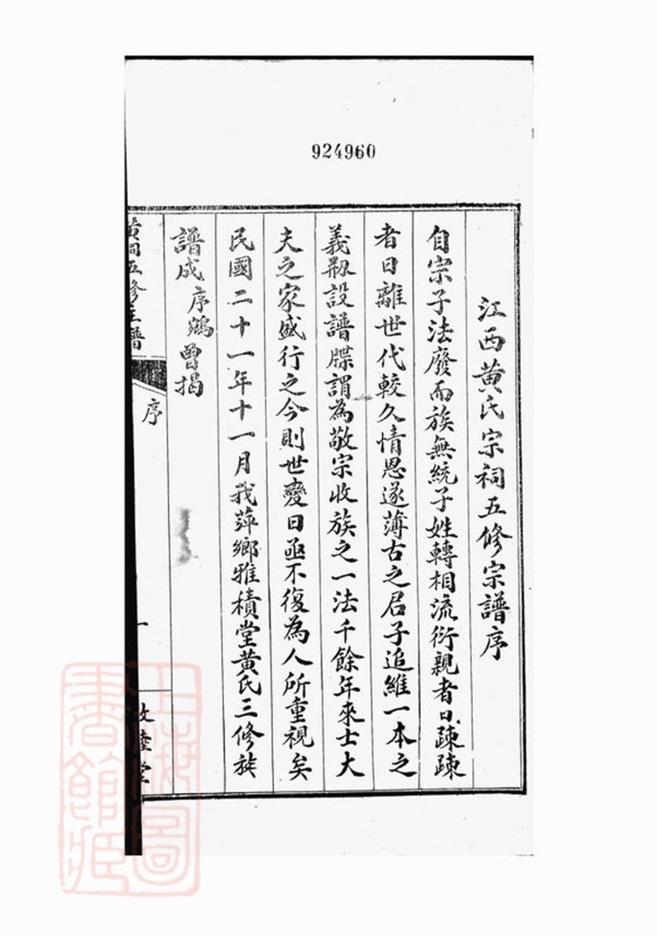 924960
江西黃氏宗祠五修宗譜序
自宗子法廢而族無統子姓轉相流衍親者日疎疎
者日離世代較久情恩遂薄古之君子追維一本之
義剏設譜牒謂為敬宗收族之一法千餘年來士大
夫之家盛行之今則世變日亟不復為人所重視矣
民國二十一年十一月我萍鄉雅積堂黃氏三修族
譜成序鵷曾揭
黃祠五修主譜
序
一
敦睦堂